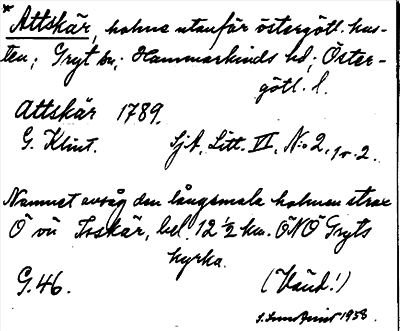 * Attskär, holme utanför östergötl. kus-
ten; Gryt sn; Hammarkinds hd; Öster-
götl. l.
Attskär 1789.
G. Klint. Sjk. Litt. II, N:o 2, 1 o. 2.
Namnet avsåg den långsmala holmen strax
Ö om Torskär, bel. 12 ½ km. ÖNÖ Gryts
kyrka.
G. 46. (Vänd!)
1958.